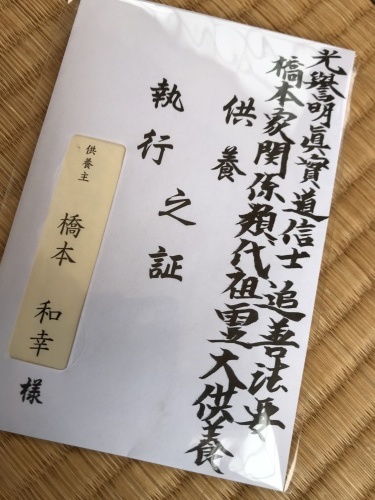 光譽明眞實道信士 追善法要
橋本家関係類代祖霊大供養
供養
執行之証
供養主
橋本 和幸
様